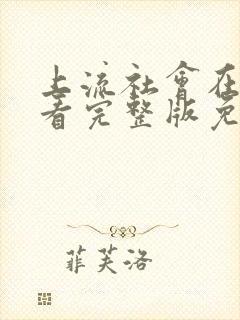 上流社會在
看完整版免
菲芙洛